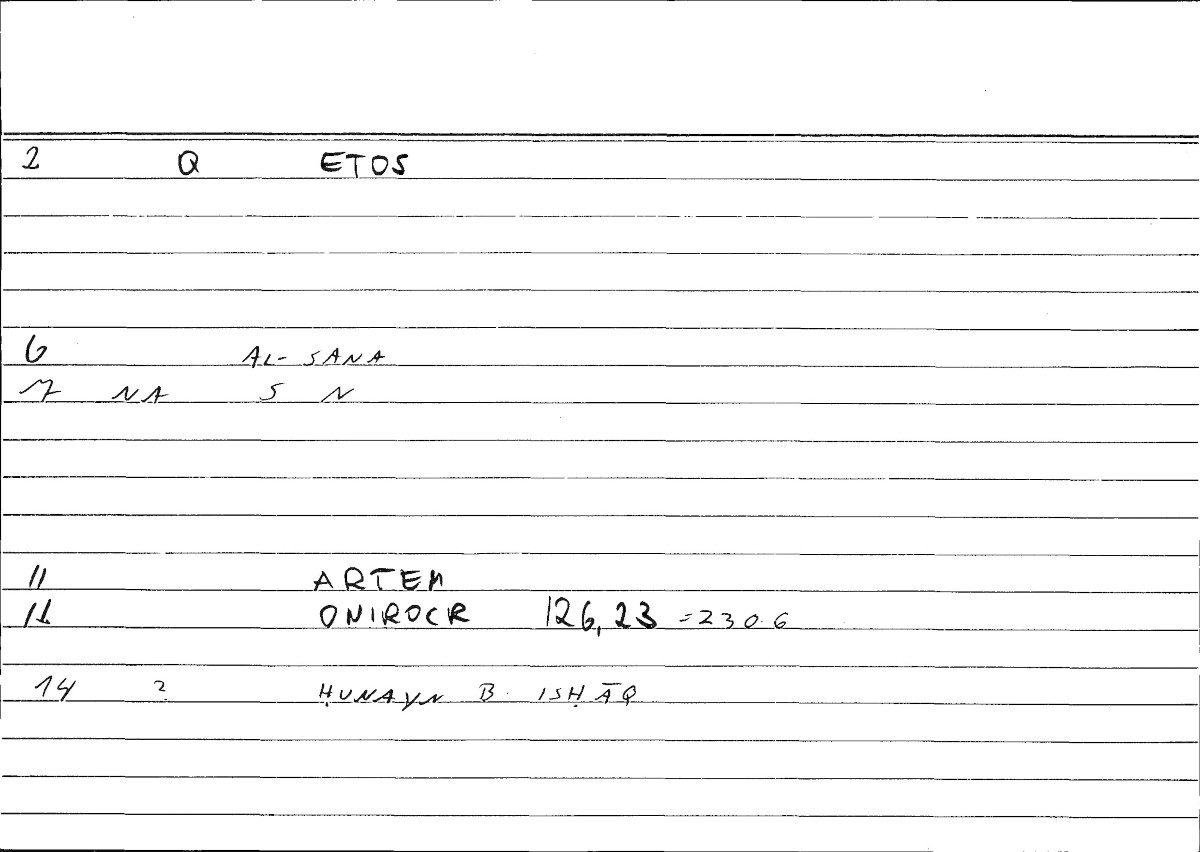 2 Q ETOS
6 AL-SANA
7 NA S N
11 ARTEM
12 ONIROCR 126,23 =230.6
14 2 ḤUNAYN B. ISḤĀQ